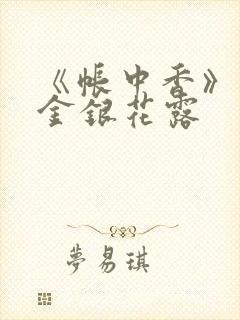 《帳中香》
金銀花露
夢易琪